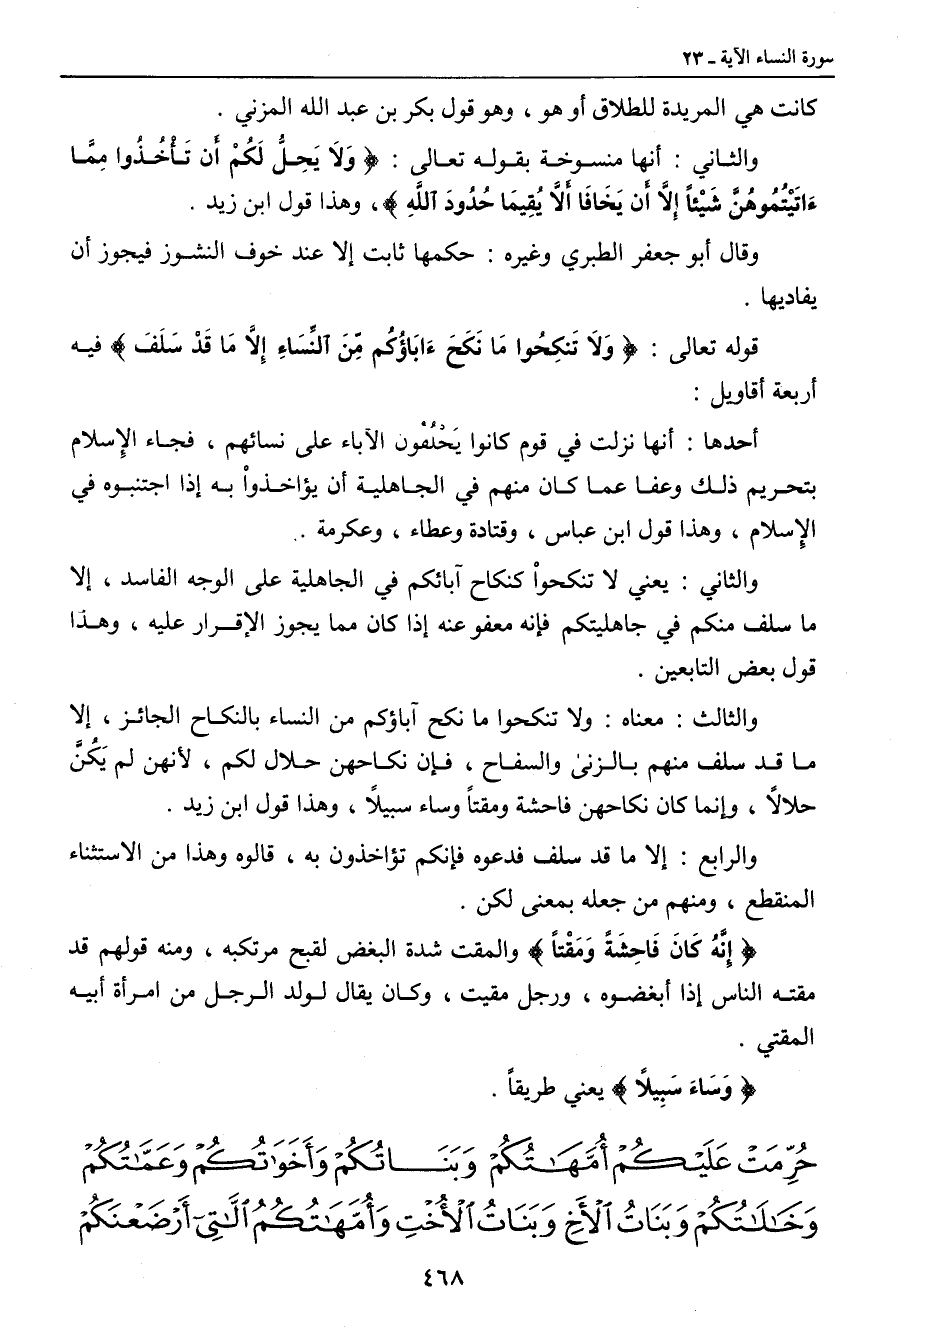 سورة النساء الآية ـ ٢٣
كانت هي المريدة للطلاق أو هو ، وهو قول بكر بن عبد الله المزني .
والثاني : أنها منسوخة بقوله تعالى : ﴿ وَلَا يَحِلُّ لَكُمْ أَن تَأْخُذُوا مِمَّا
ءَاتَيْتُمُوهُنَّ شَيْئاً إِلَّا أَن يَخَافَا أَلَّا يُقِيمَا حُدُودَ ٱللَّهِ ﴾ ، وهذا قول ابن زيد .
وقال أبو جعفر الطبري وغيره : حكمها ثابت إلا عند خوف النشوز فيجوز أن
يفاديها .
قوله تعالى : ﴿ وَلَا تَنكِحُوا مَا نَكَحَ ءَابَاؤُكُم مِّنَ ٱلنِّسَاءِ إِلَّا مَا قَدْ سَلَفَ ﴾ فيه
أربعة أقاويل :
أحدها : أنها نزلت في قوم كانوا يَخْلُفُون الآباء على نسائهم ، فجاء الإسلام
بتحريم ذلك وعفا عما كان منهم في الجاهلية أن يؤاخذواْ به إذا اجتنبوه في
الإسلام ، وهذا قول ابن عباس ، وقتادة وعطاء ، وعكرمة .
والثاني : يعني لا تنكحواْ كنكاح آبائكم في الجاهلية على الوجه الفاسد ، إلا
ما سلف منكم في جاهليتكم فإنه معفو عنه إذا كان مما يجوز الإقرار عليه ، وهذا
قول بعض التابعين .
والثالث : معناه : ولا تنكحوا ما نكح آباؤكم من النساء بالنكاح الجائز ، إلا
ما قد سلف منهم بالزنىٰ والسفاح ، فإن نكاحهن حلال لكم ، لأنهن لم يَكُنَّ
حلالاً ، وإنما كان نكاحهن فاحشة ومقتاً وساء سبيلاً ، وهذا قول ابن زيد .
والرابع : إلا ما قد سلف فدعوه فإنكم تؤاخذون به ، قالوه وهذا من الاستثناء
المنقطع ، ومنهم من جعله بمعنى لكن .
﴿ إِنَّهُ كَانَ فَاحِشَةً وَمَقْتاً ﴾ والمقت شدة البغض لقبح مرتكبه ، ومنه قولهم قد
مقته الناس إذا أبغضوه ، ورجل مقيت ، وكان يقال لولد الرجل من امرأة أبيه
المقتي .
﴿ وَسَاءَ سَبِيلاً ﴾ يعني طريقاً .
حُرِّمَتْ عَلَيْكُمْ أُمَّهَٰتُكُمْ وَبَنَاتُكُمْ وَأَخَوَٰتُكُمْ وَعَمَّٰتُكُمْ
وَخَٰلَٰتُكُمْ وَبَنَاتُ ٱلْأَخِ وَبَنَاتُ ٱلْأُخْتِ وَأُمَّهَٰتُكُمُ ٱلَّٰتِىٓ أَرْضَعْنَكُمْ
٤٦٨